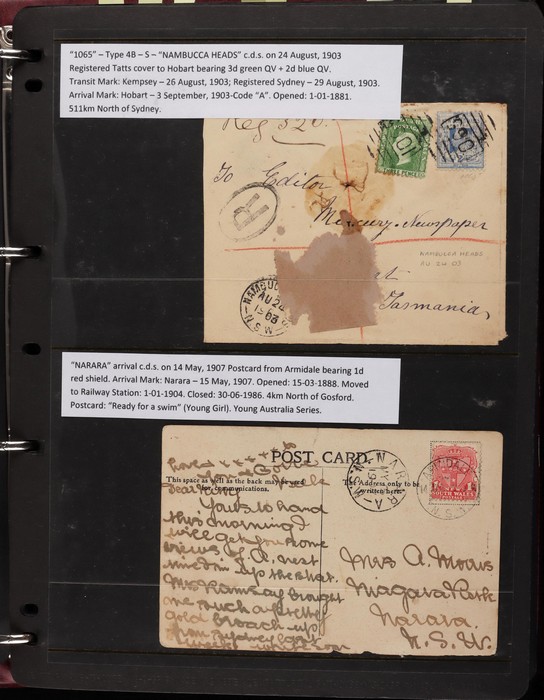 "1065" – Type 4B – S – "NAMBUCCA HEADS" c.d.s. on 24 August, 1903
Registered Tatts cover to Hobart bearing 3d green QV + 2d blue QV.
Transit Mark: Kempsey – 26 August, 1903; Registered Sydney – 29 August, 1903.
Arrival Mark: Hobart – 3 September, 1903-Code "A". Opened: 1-01-1881.
511km North of Sydney.
Reg 320.
THREE PENCE
To Editor
R
Mercury Newspaper
NAMBUCCA HEADS
AU 24 03
Tasmania
"NARARA" arrival c.d.s. on 14 May, 1907 Postcard from Armidale bearing 1d
red shield. Arrival Mark: Narara – 15 May, 1907. Opened: 15-03-1888. Moved
to Railway Station: 1-01-1904. Closed: 30-06-1986. 4km North of Gosford.
Postcard: "Ready for a swim" (Young Girl). Young Australia Series.
POST CARD.
This space as well as the back may be used
for communications.
The Address only to be
written here.
NARARA
SOUTH WALES
Yours to hand
this morning I
will get you some
views of A. next
time I'm up the
Mrs Ramsay brought
me such a pretty
gold broach up
from Sydney last
Mrs A. Morris
Niagara Park
Narara
N.S.W.